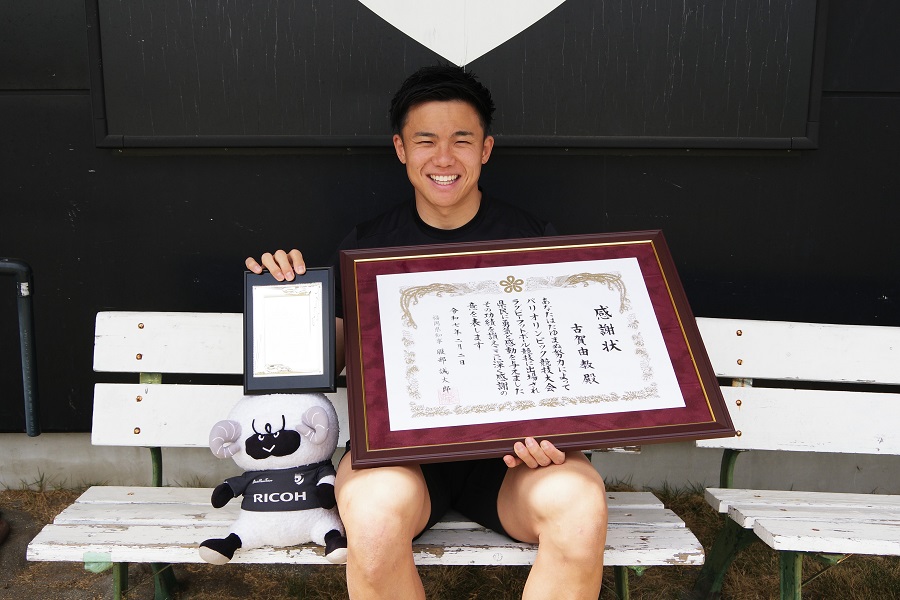 感謝状
古賀由教殿
あなたはたゆまぬ努力によって
パリオリンピック競技大会
ラグビーフットボール競技に出場され
県民に勇気と感動を与えました
その功績を讃えここに深く感謝の
意を表します
令和七年二月二日
福岡県知事 服部誠太郎
RICOH